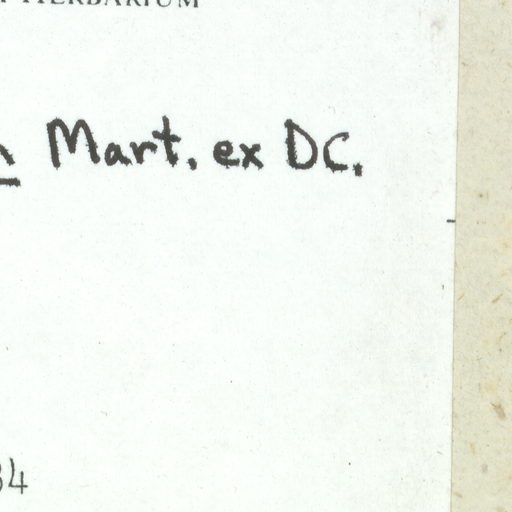 HERBARIUM
Mart. ex DC.
34